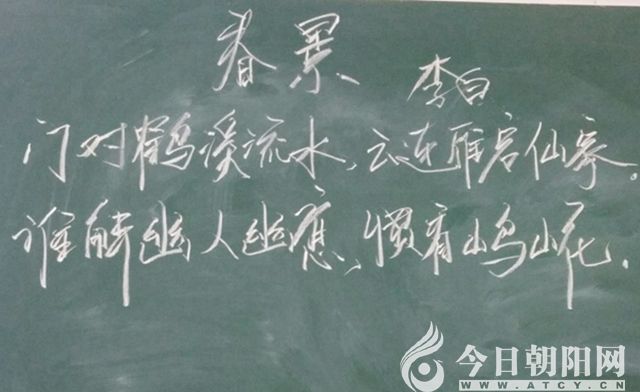 春景
李白
门对鹤溪流水,云连雁宕仙家。
谁解幽人幽意,惯看山鸟山花。
今日朝阳网
WWW.ATCY.CN